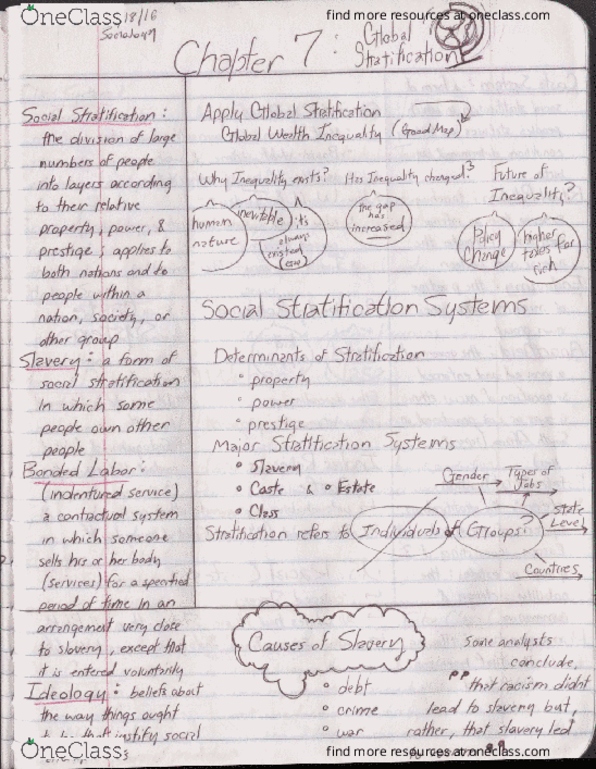 OneClass
find more resources at oneclass.com
18/16
Sociology
Chapter 7: Global Stratification
Social Stratification:
the division of large
numbers of people
into layers according
to their relative
property, power, &
prestige; applies to
both nations and to
people within a
nation, society, or
other group
Slavery: a form of
social stratification
in which some
people own other
people
Bonded Labor:
(indentured service)
a contractual system
in which someone
sells his or her body
(services) for a specified
period of time in an
arrangement very close
to slavery, except that
it is entered voluntarily
Ideology: beliefs about
the way things ought
to be that justify social
Apply Global Stratification
Global Wealth Inequality (Good Map)
Why Inequality exists?
human nature
inevitable
its always existed
Has Inequality changed?
the gap has increased
Future of Inequality?
Policy Change
higher taxes for rich
Social Stratification Systems
Determinants of Stratification
° property
° power
° prestige
Major Stratification Systems
° Slavery
° Caste & ° Estate
° Class
Stratification refers to Individuals of Groups?
Gender
Types of Jobs
State Level
Countries
Causes of Slavery
° debt
° crime
° war
Some analysts
conclude,
"that racism didnt
lead to slavery but,
rather, that slavery led
OneClass
find more resources at oneclass.com